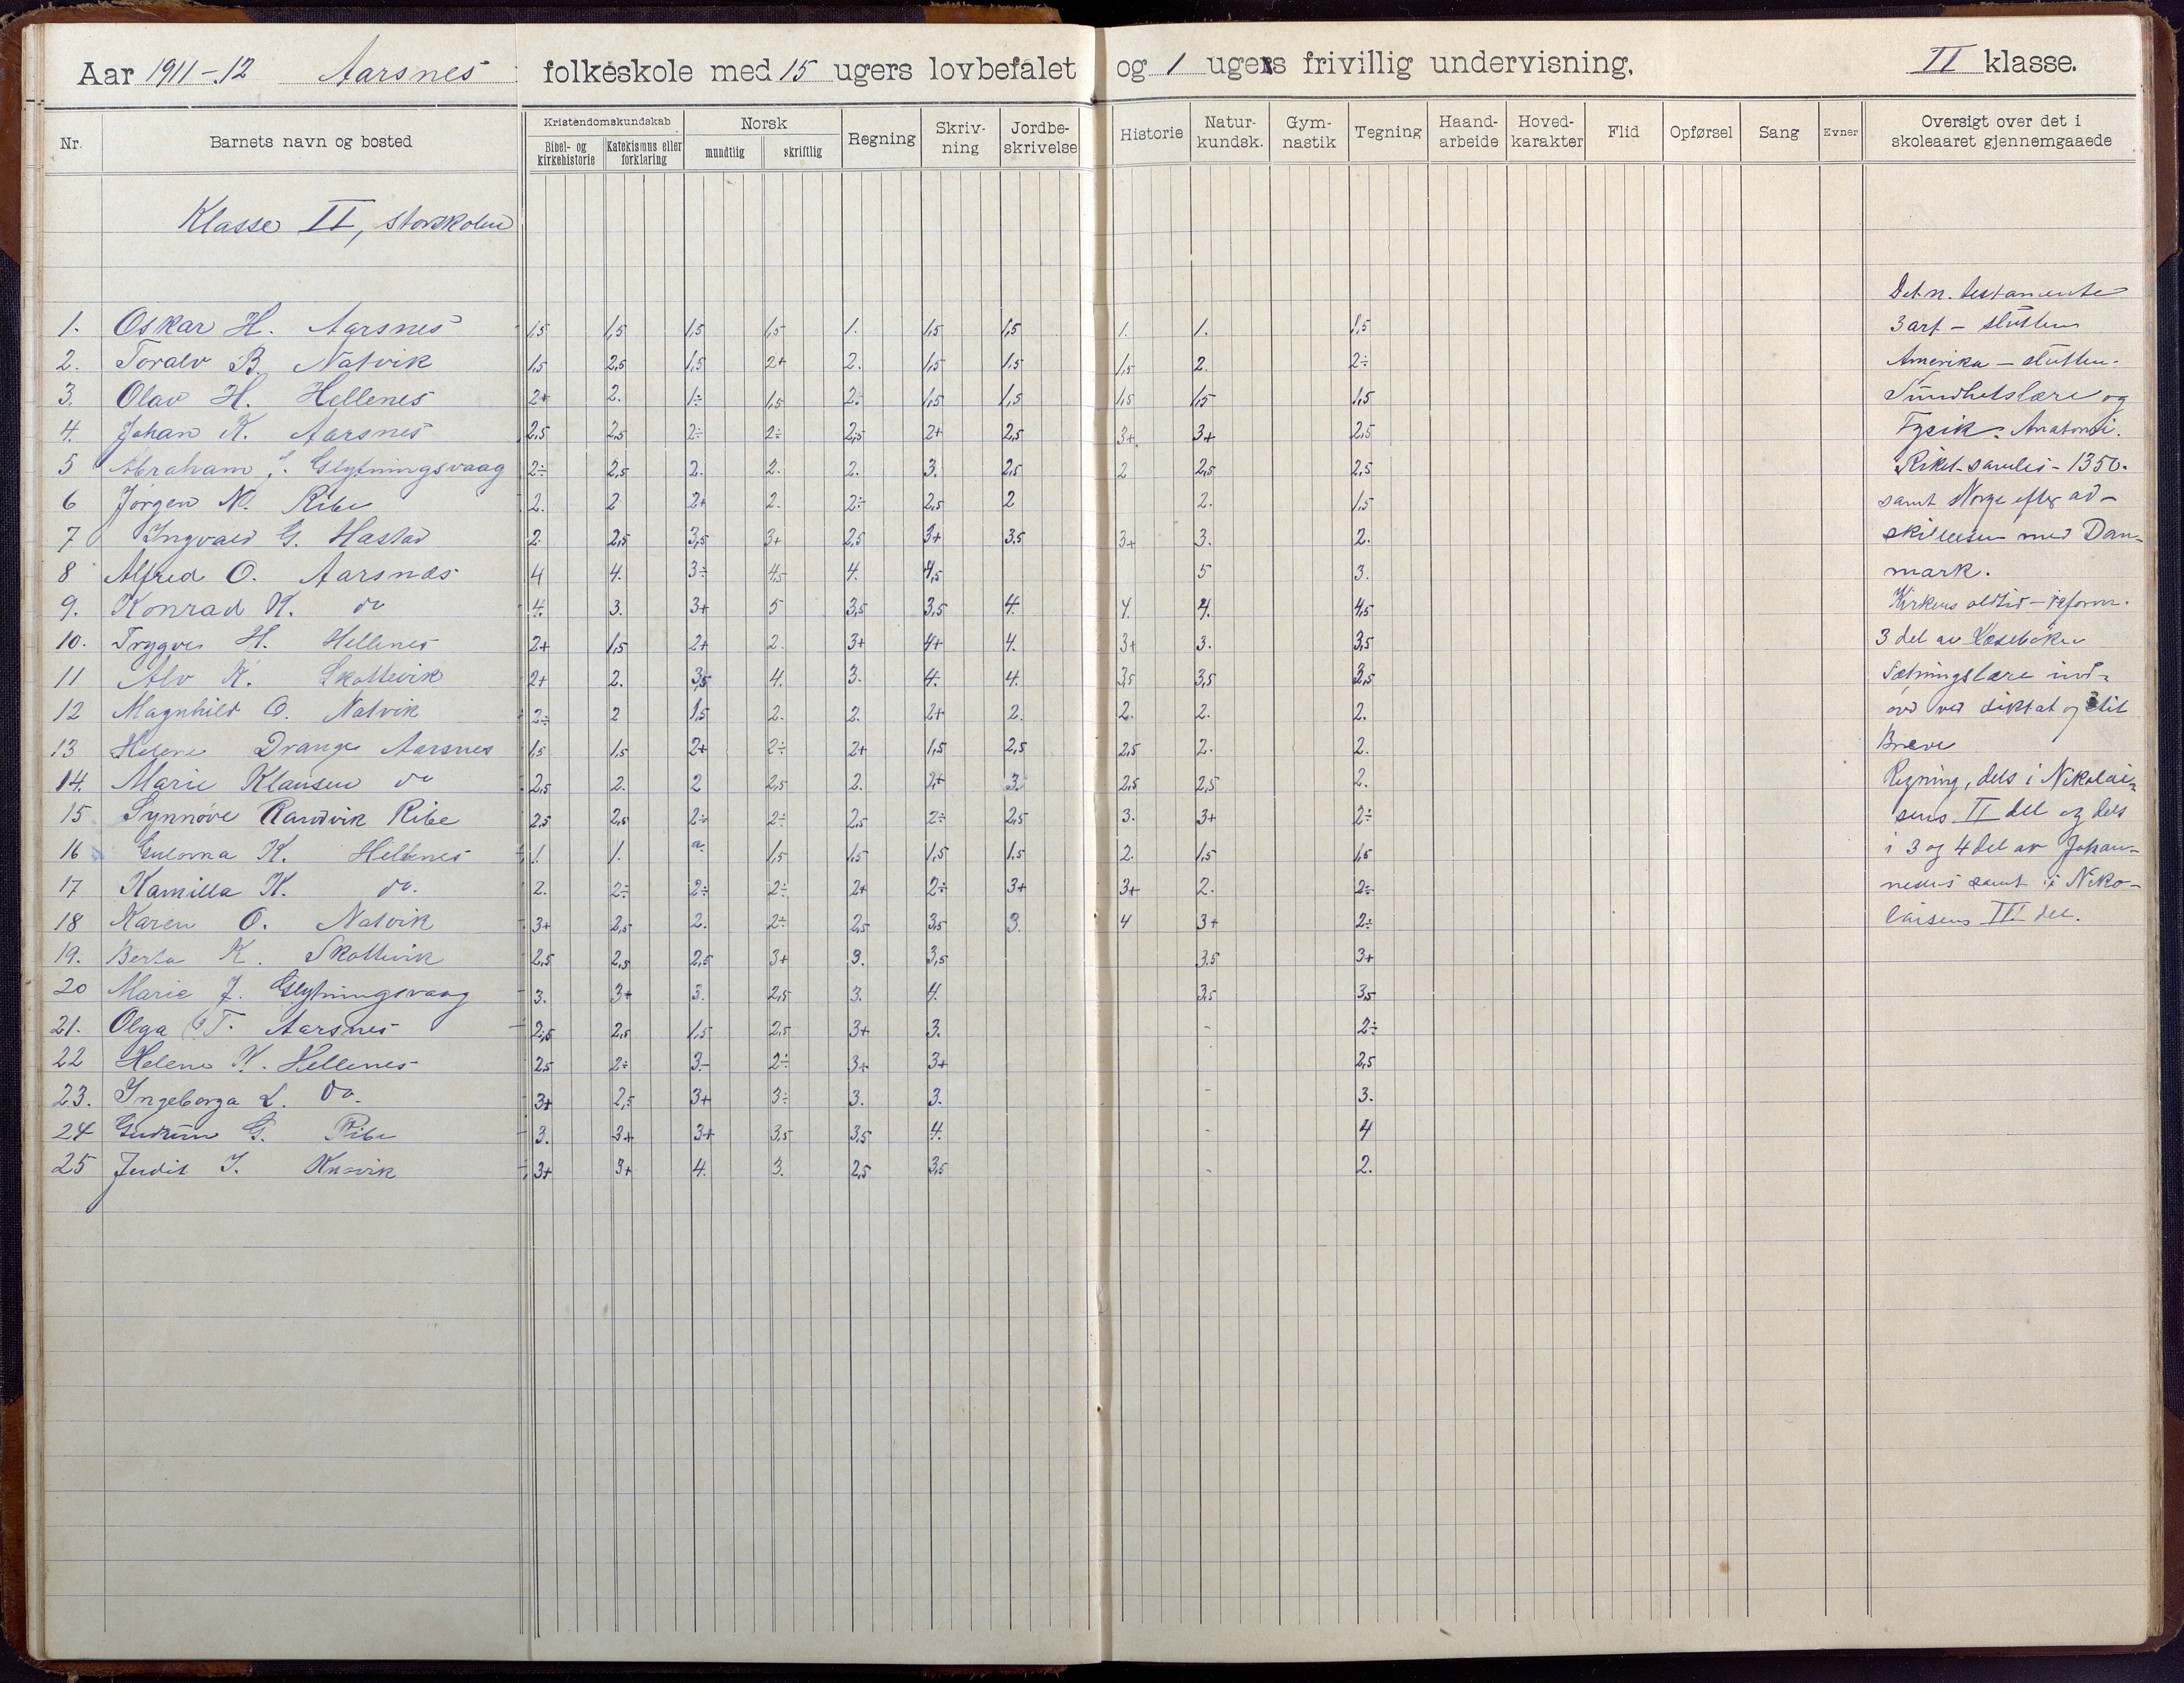 Aar 1911-12 Aarsnes folkeskole med 15 ugers lovbefalet og 1 ugers frivillig undervisning. II klasse.
Nr. Barnets navn og bosted Kristendomskundskab Bibel- og kirkehistorie Katekismus eller forklaring Norsk mundtlig skriftlig Regning Skriv-ning Jordbe-skrivelse Historie Natur-kundsk. Gym-nastik Tegning Haand-arbeide Hoved-karakter Flid Opførsel Sang Evner Oversigt over det i skoleaaret gjennemgaaede
Klasse II, storskolen
Det n. testamente
1. Oskar H. Aarsnes 1,5 1,5 1,5 1,5 1. 1,5 1,5 1. 1. 1,5 3 art - slutten
2. Toralv B. Natvik 1,5 2,5 1,5 2+ 2. 1,5 1.5 1,5 2. 2÷ Amerika - slutten.
3. Olav H. Hellenes 2+ 2. 1÷ 1,5 2. 1,5 1,5 1,5 1,5 1,5 Sundhetslære og
4. Johan K. Aarsnes 2,5 2,5 2÷ 2÷ 2,5 2+ 2,5 3+ 3+ 2,5 Fysik. Anatomi.
5 Abraham J. Glytningsvaag 2÷ 2,5 2. 2. 2. 3. 2,5 2 2,5 2,5 Riket samles - 1350.
6 Jørgen N. Ribe 2. 2 2+ 2. 2÷ 2,5 2 2. 1,5 samt Norge efter ad-
7 Ingvald G. Hastad 2. 2,5 3,5 3+ 2,5 3+ 3.5 3+ 3. 2. skillelsen med Dan-
8 Alfred O. Aarsnæs 4 4. 3÷ 4,5 4. 4,5 5 3. mark.
9. Konrad K. do 4. 3. 3+ 5 3,5 3,5 4. 4. 4. 4,5 Kirkens oldtid - reform.
10. Trygve H. Hellenes 2+ 1,5 2+ 2. 3+ 4+ 4. 3+ 3. 3,5 3 del av Læseboken
11 Alv K. Skottevik 2+ 2. 3,5 4. 3. 4. 4. 3,5 3,5 2,5 Sætningslære ind-
12 Magnhild O. Natvik 2÷ 2 1,5 2. 2. 2+ 2. 2. 2. 2. øvd ved diktat og stil
13 Helene Drange Aarsnes 1,5 1,5 2+ 2÷ 2+ 1,5 2,5 2,5 2. 2. Breve
14. Marie Klausen do 2,5 2. 2 2,5 2. 2+ 3. 2,5 2,5 2. Regning, dels i Nikolai-
15 Synnøve Randvik Ribe 2,5 2,5 2÷ 2÷ 2,5 2÷ 2,5 3. 3+ 2÷ sens II del og dels
16 Gulovna K. Hellenes 1. 1. a. 1,5 1,5 1,5 1,5 2. 1,5 1,5 i 3 og 4 del av Johan-
17 Kamilla K. do. 2. 2÷ 2÷ 2÷ 2+ 2÷ 3+ 3+ 2. 2÷ nesens samt i Niko-
18 Karen O. Natvik 3+ 2,5 2. 2÷ 2,5 3,5 3. 4 3+ 2÷ laisens III del.
19. Berta K. Skottevik 2,5 2,5 2,5 3+ 3. 3,5 3.5 3+
20 Marie J. Glytningsvaag 3. 3+ 3. 2,5 3. 4. 3,5 3,5
21. Olga T. Aarsnes 2,5 2,5 1,5 2,5 3+ 3. - 2÷
22 Helene K. Hellenes 2,5 2÷ 3- 2÷ 3+ 3+ 2,5
23. Ingeborga L. Do. 3+ 2,5 3+ 3÷ 3. 3. - 3.
24 Gudrun G. Ribe 3. 3+ 3+ 3,5 3,5 4. - 4
25 Judit I. Knavik 3+ 3+ 4. 3. 2,5 3,5 - 2.